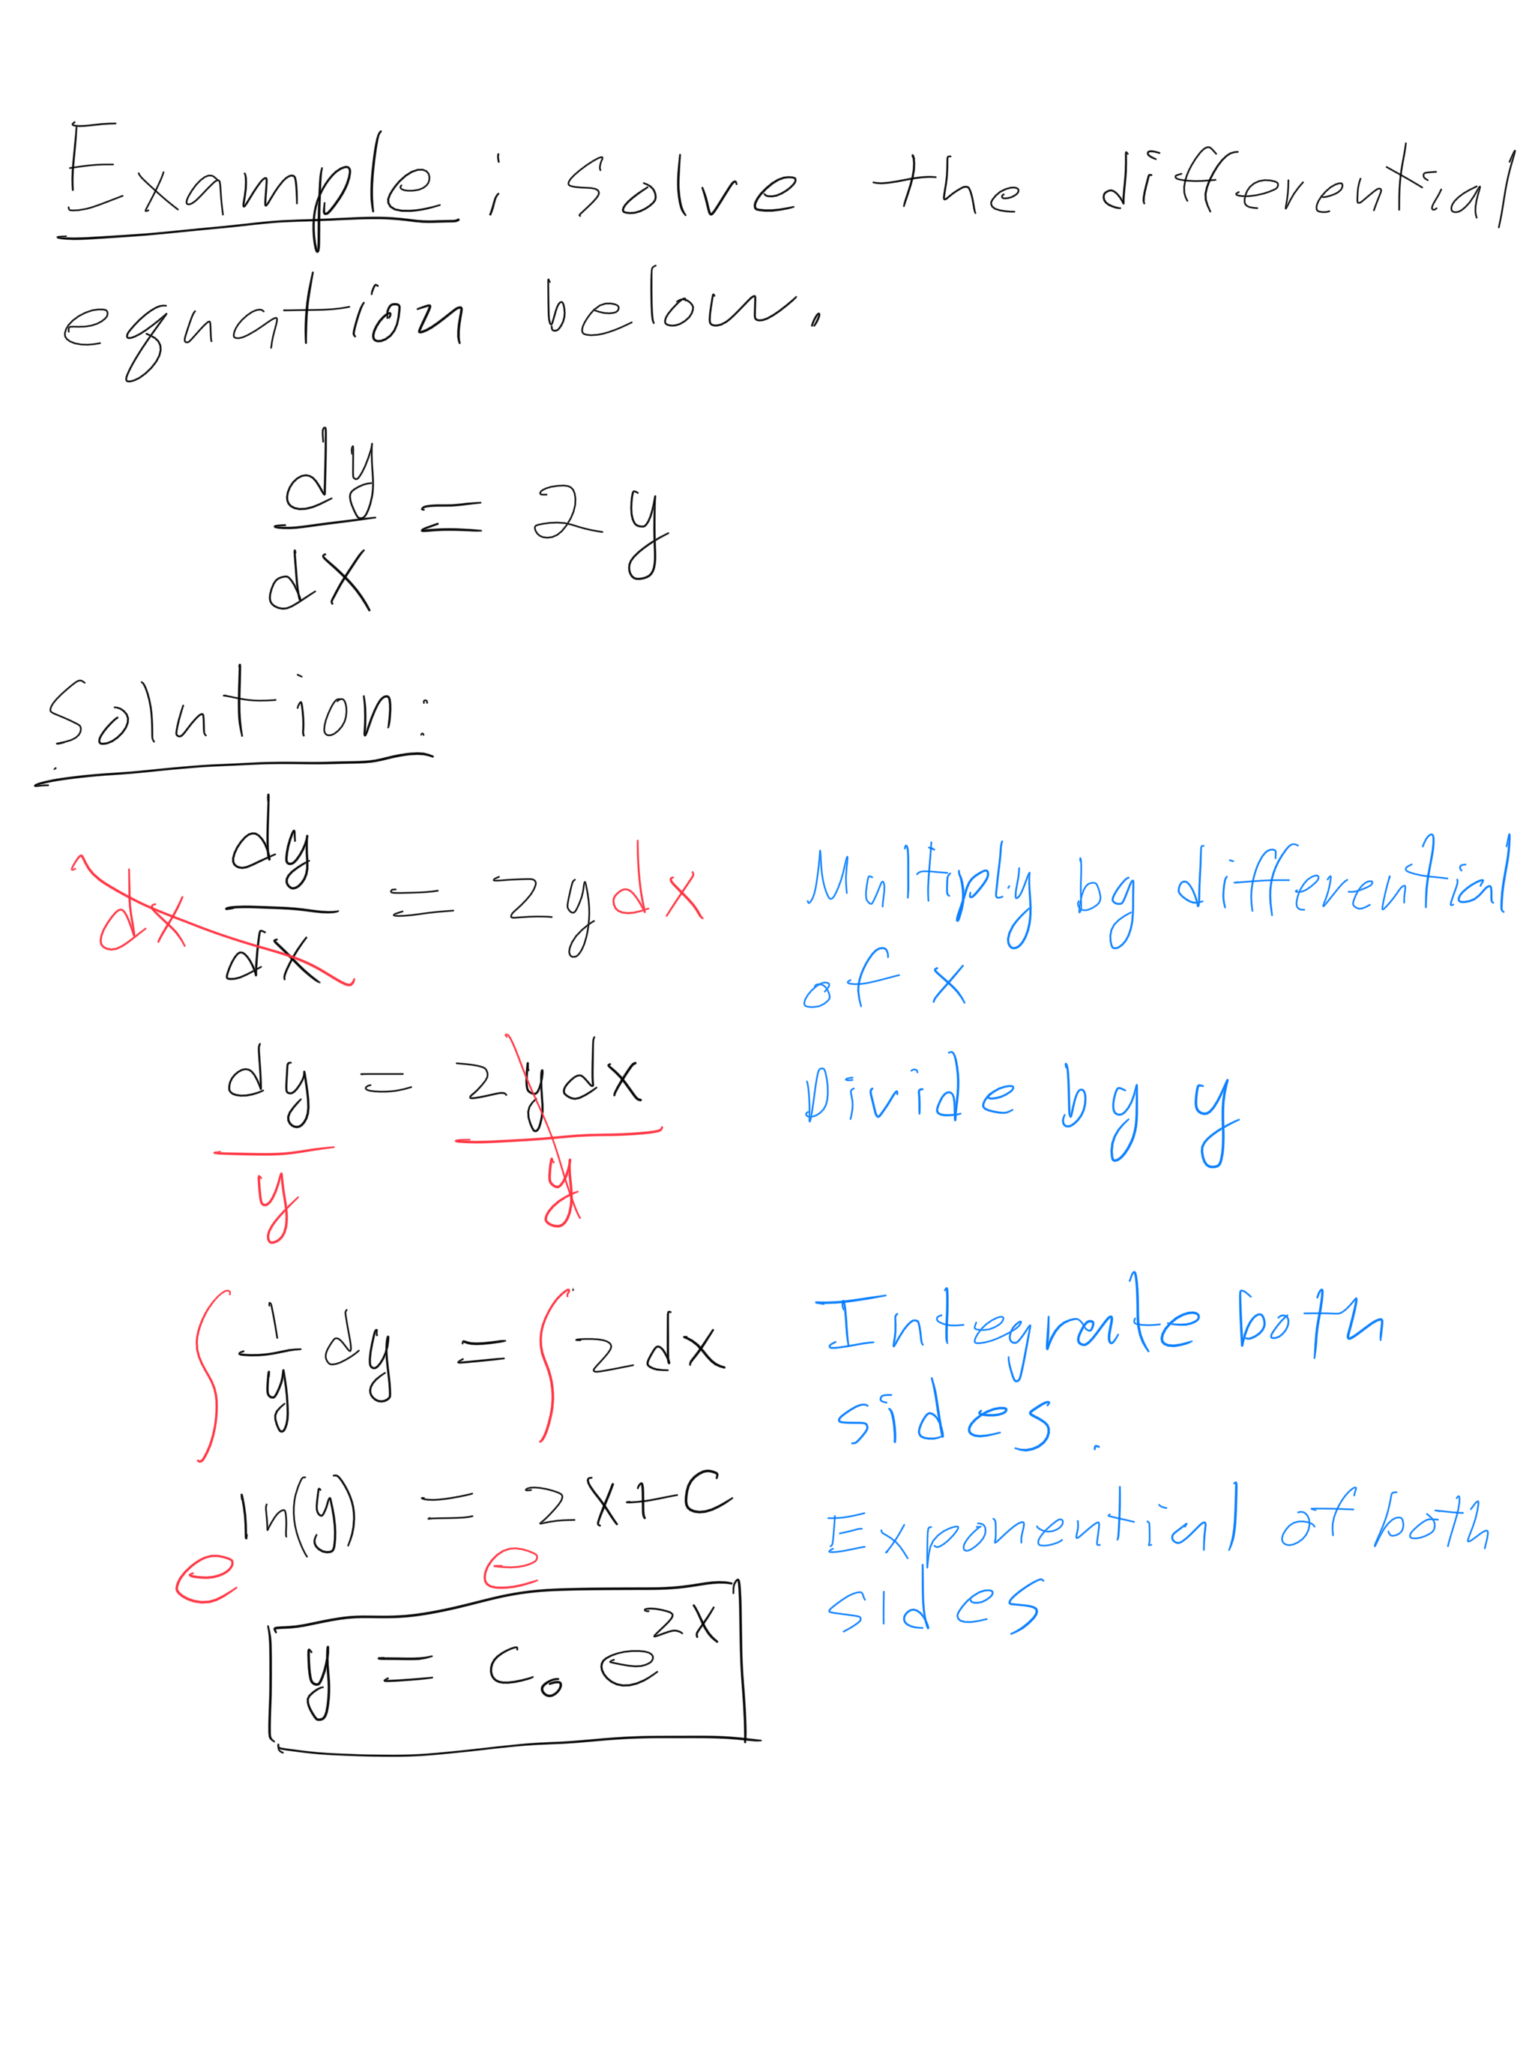 Example: solve the differential
equation below.
dy/dx = 2y
Solution:
dx dy/dx = 2y dx Multiply by differential
of x
dy/y = 2y dx/y Divide by y
∫ 1/y dy = ∫ 2 dx Integrate both
sides.
e ln(y) = e 2x+c Exponential of both
sides
y = c₀ e^2x